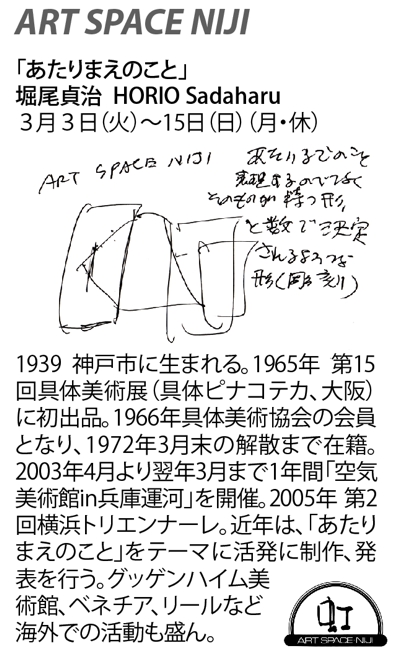 ART SPACE NIJI
「あたりまえのこと」
堀尾貞治 HORIO Sadaharu
３月３日（火）～15日（日）（月・休）
ART SPACE NIJI
あたりまでのこと
表現するのでなく
そのものが持つ形,
と数で決定
されるような
形(彫刻)
1939 神戸市に生まれる。1965年 第15
回具体美術展（具体ピナコテカ、大阪）
に初出品。1966年具体美術協会の会員
となり、1972年3月末の解散まで在籍。
2003年4月より翌年3月まで1年間「空気
美術館in兵庫運河」を開催。2005年 第2
回横浜トリエンナーレ。近年は、「あたり
まえのこと」をテーマに活発に制作、発
表を行う。グッゲンハイム美
術館、ベネチア、リールなど
海外での活動も盛ん。
ART SPACE NIJI